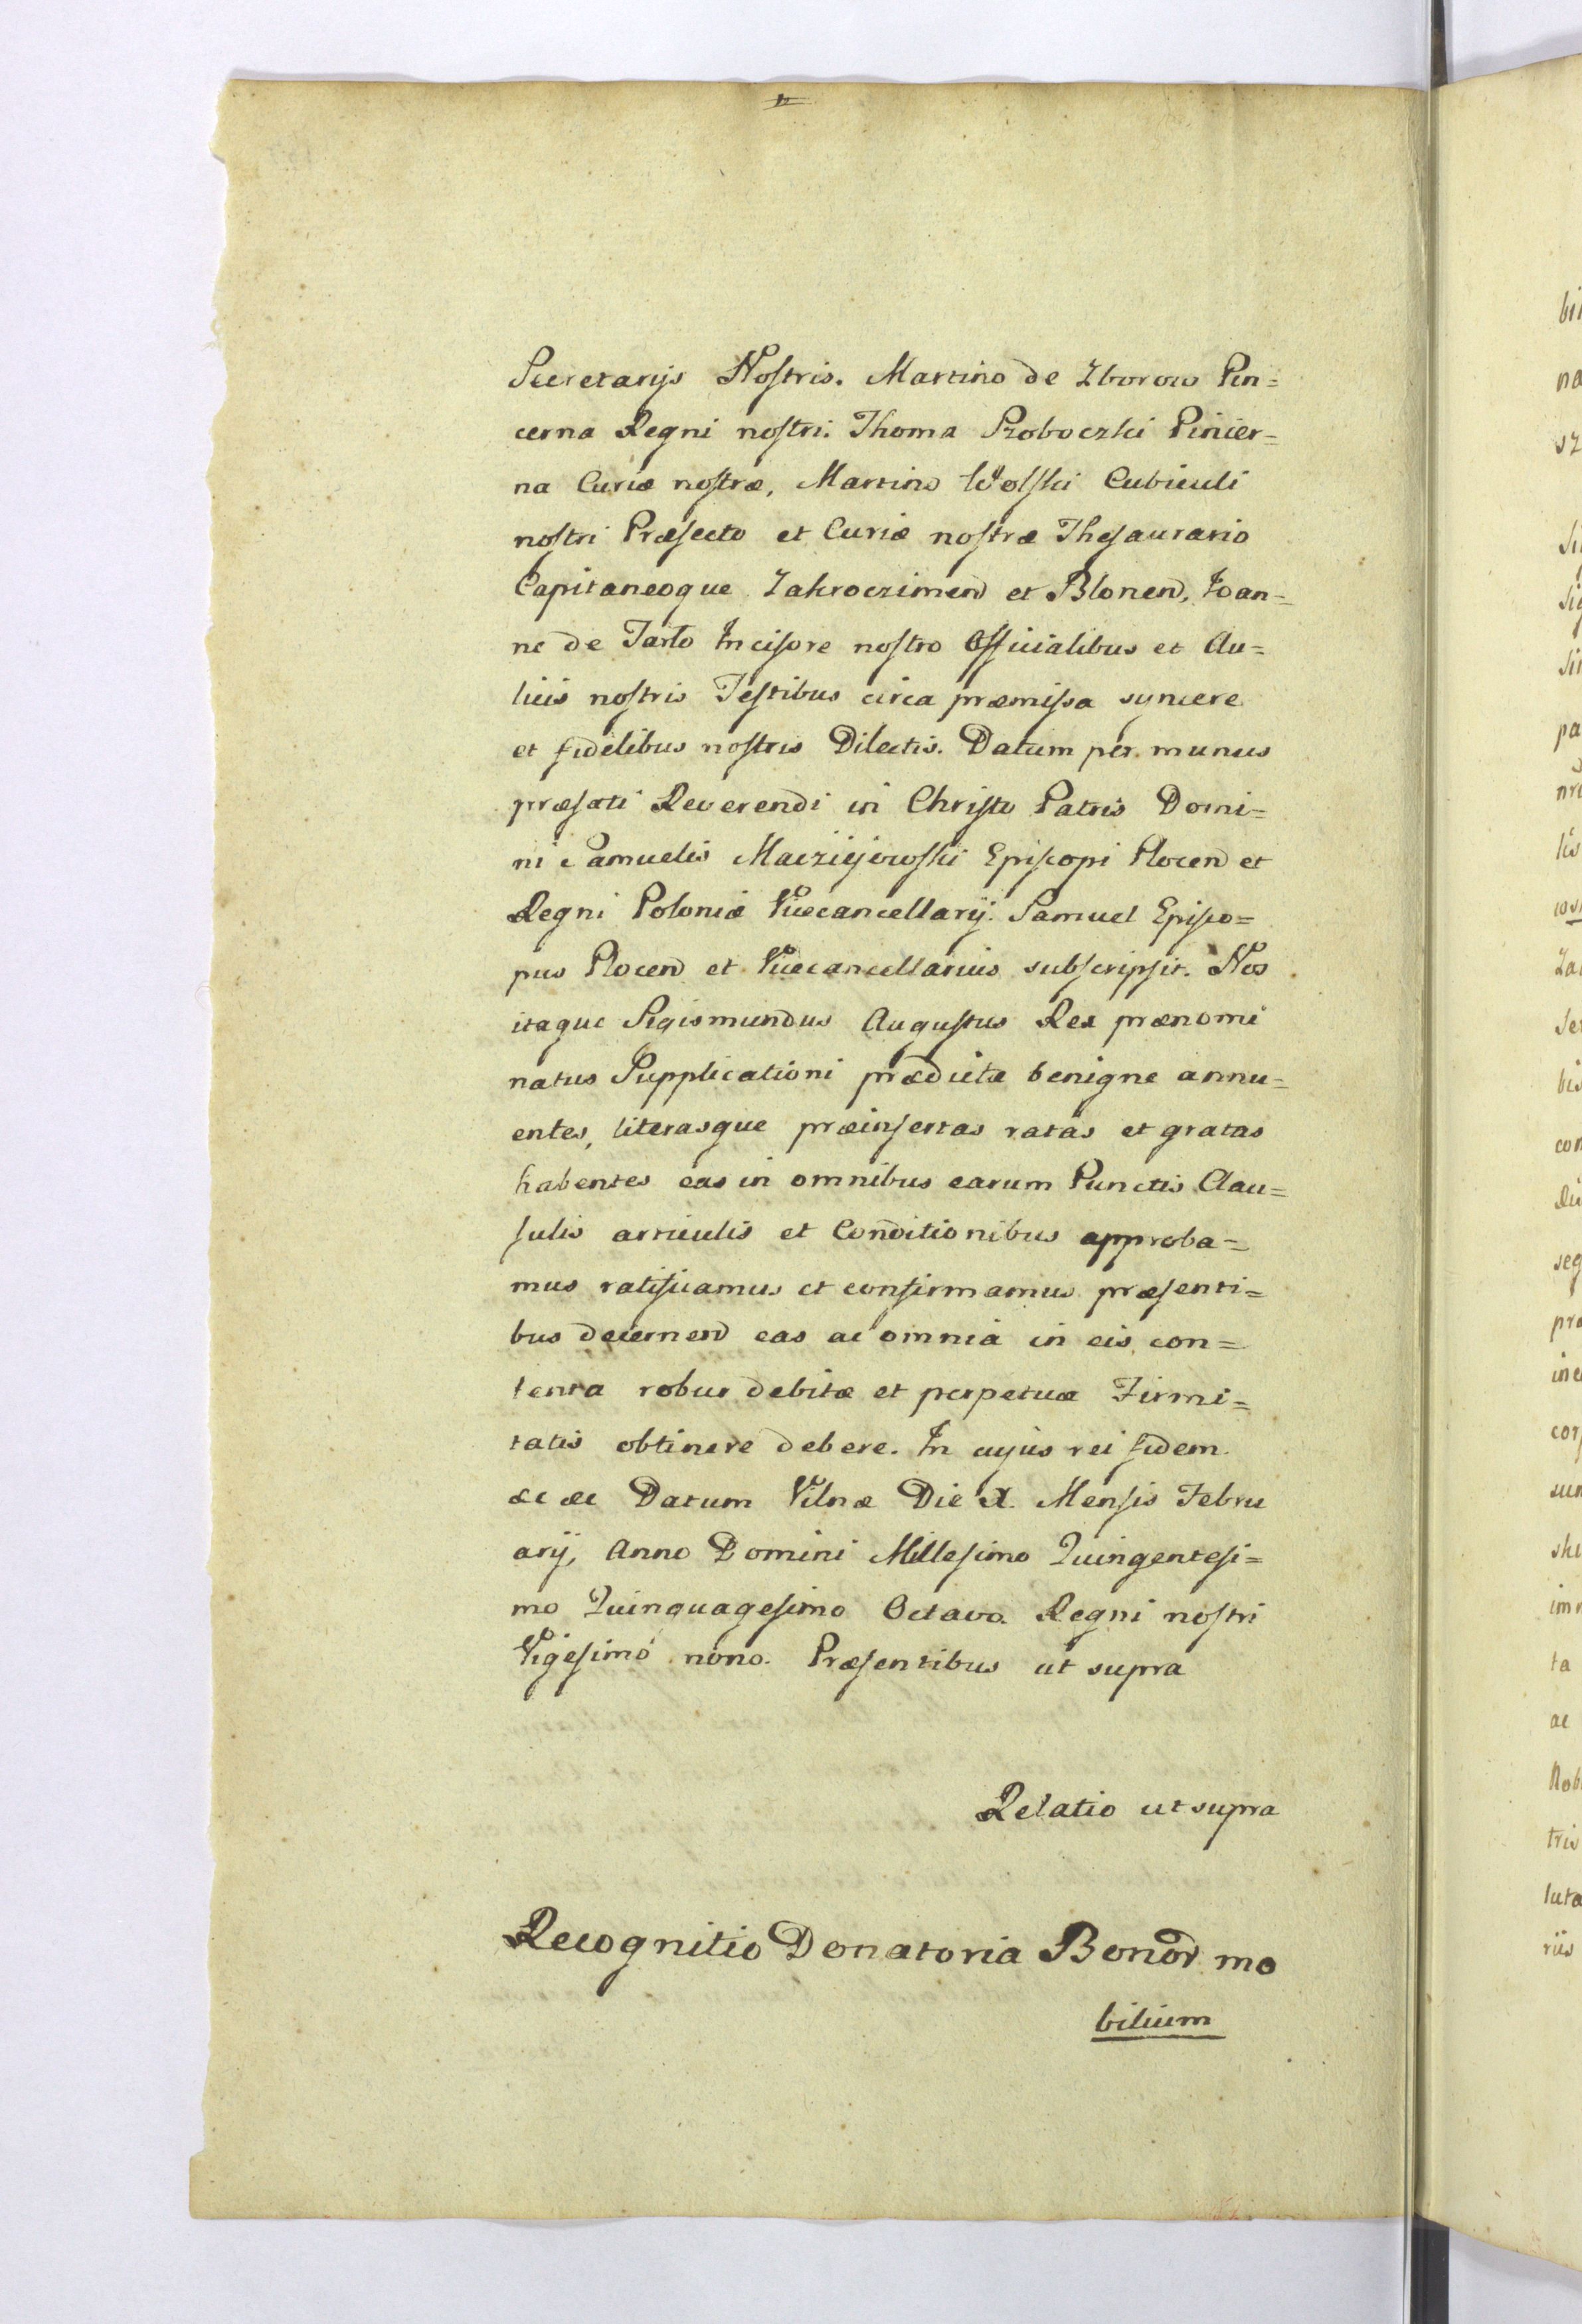 Secretarijs Nostris. Martino de Zborow Pin=
cerna Regni nostri. Thoma Proboczki Pincer=
na Curiæ nostræ, Martino Wolski Cubiculi
nostri Præfecto et Curiæ nostræ Thesaurario
Capitaneoque Zakroczimen et Blonen, Joan=
ne de Tarlo Incisore nostro Officialibus et Au=
licis nostris Testibus circa præmissa syncere
et fidelibus nostris Dilectis. Datum per munus
præfati Reverendi in Christo Patris Domi=
ni Samuelis Macziejowski Episcopi Plocen et
Regni Poloniæ Vicecancellarij. Samuel Episco=
pus Plocen et Vicecancellarius subscripsit. Nos
itaque Sigismundus Augustus Rex prænomi
natus Supplicationi prædictæ benigne annu=
entes, literasque præinsertas ratas et gratas
habentes eas in omnibus earum Punctis Clau=
sulis articulis et Conditionibus approba=
mus ratificamus et confirmamus præsenti=
bus decernen eas ac omnia in eis con=
tenta robur debitæ et perpetuæ Firmi=
tatis obtinere debere. In cujus rei fidem
&c &c Datum Vilnæ Die X. Mensis Febru
arij, Anno Domini Millesimo Quingentesi=
mo Quinquagesimo Octavo. Regni nostri
Vigesimo nono. Præsentibus ut supra
Relatio ut supra
Recognitio Donatoria Bonor mo
bilium